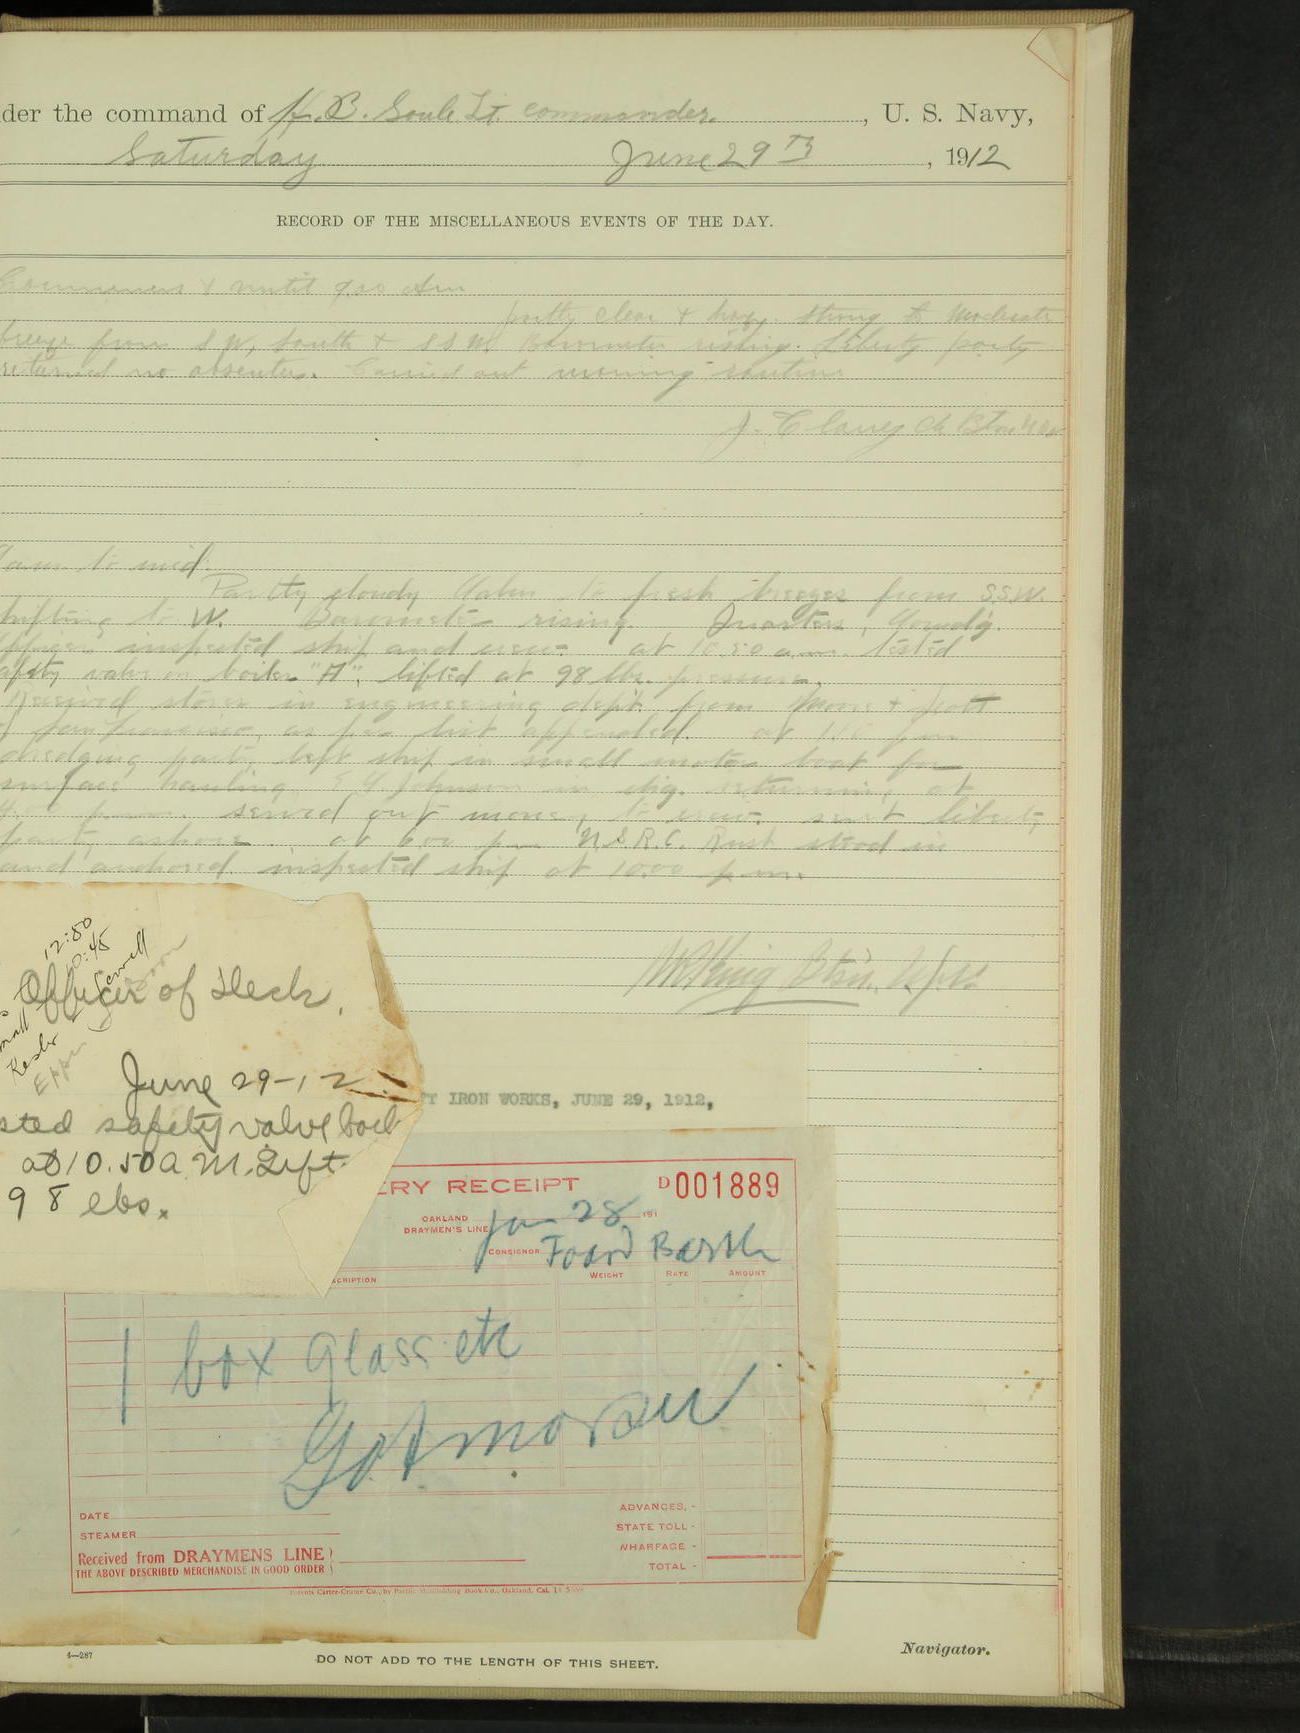 der the command of H. B. Soule Lt. Commander. , U. S. Navy,
Saturday June 29th , 1912
RECORD OF THE MISCELLANEOUS EVENTS OF THE DAY.
& until 4.00 Am
Partly clear & hazy. Strong to Moderate
breeze from S W, South & S S W. Barometer rising. Liberty party
returned no absentees. Carried out morning routine
to mid.
Partly cloudy Calm to fresh breezes from S.S.W.
shifting to W. Barometer rising. Quarters, Comd'g.
officer inspected ship and crew. at 10.50 a.m. tested
safety valve on boiler "A", lifted at 98 lbs. pressure.
Received stores in engineering dept. from Moore & Scott
San Francisco, as per list appended. at pm
dredging party left ship in small motor boat for
surface hauling, Johnson in chg. returning at
p.m. served out money to crew. sent liberty
party ashore. at 6 00 p.m U.S.R.C. Rush stood in
and anchored. inspected ship at 10.00 p.m.
12:50
Sewell
Officer of deck.
Kesler
June 29-12
sted safety valve boil
at 10.50 A.M. Lift
98 lbs.
T IRON WORKS, JUNE 29, 1912,
ERY RECEIPT D001889
OAKLAND
DRAYMEN'S LINE 28 191
CONSIGNOR
CRIPTION WEIGHT RATE AMOUNT
1 box Glass etc
DATE
STEAMER
Received from DRAYMENS LINE
THE ABOVE DESCRIBED MERCHANDISE IN GOOD ORDER
ADVANCES, -
STATE TOLL -
WHARFAGE -
TOTAL -
4—287
DO NOT ADD TO THE LENGTH OF THIS SHEET.
Navigator.